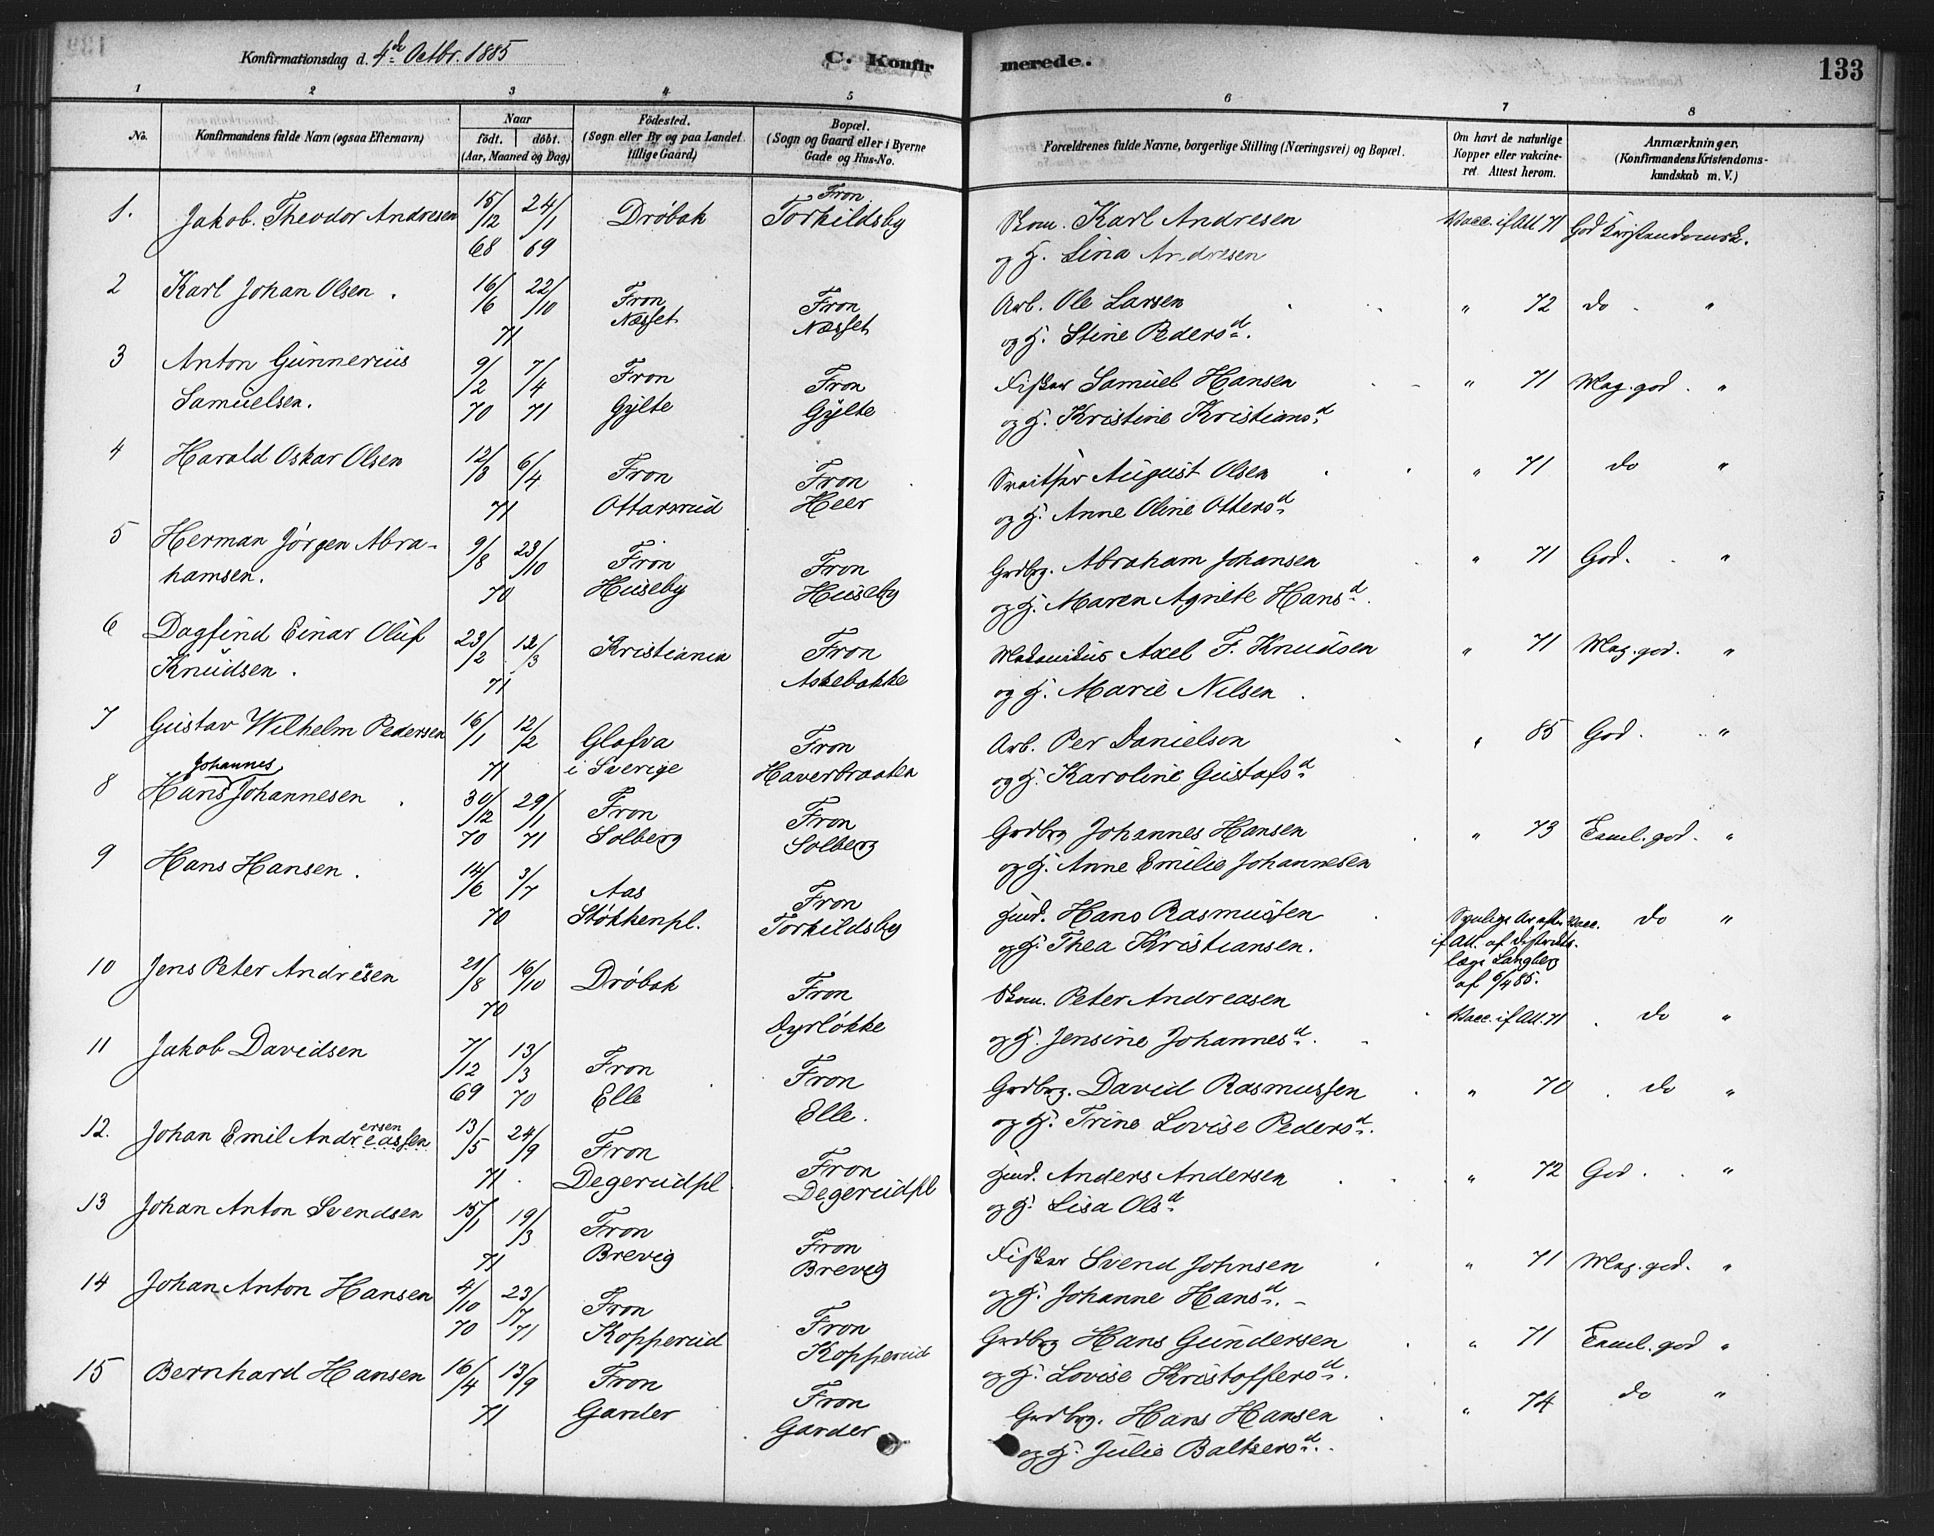 Konfirmationsdag d. 4de Octbr. 1885
C. Konfirmerede.
133
1 2 3 4 5 6 7 8
No. Konfirmandens fulde Navn (ogsaa Efternavn)
Naar født. døbt. (Aar, Maaned og Dag)
Fødested. (Sogn eller By og paa Landet tillige Gaard)
Bopæl. (Sogn og Gaard eller i Byerne Gade og Hus-No.
Forældrenes fulde Navne, borgerlige Stilling (Næringsvei) og Bopæl.
Om havt de naturlige Kopper eller vakcineret Attest herom.
Anmærkninger. (Konfirmandens Kristendomskundskab m. V.)
1. Jakob Theodor Andresen 15/12 68 24/1 69 Drøbak Fron Torkildsby
Skom. Karl Andresen og H. Lina Andresen Vacc. if Att 71 God Kristendomsk.
2 Karl Johan Olsen. 16/6 22/10 71 Fron Næsset Fron Næsset
Arb. Ole Larsen og H. Stine Pedersd. " 72 do "
3 Anton Gunnerius Samuelsen. 9/2 70 7/4 71 Fron Gylte Fron Gylte
Fisker Samuel Hansen og H. Kristine Kristiansd " 71 Meg. god. "
4 Harald Oskar Olsen 12/3 6/4 71 Fron Ottarsrud Fron Heer
August Olsen og H. Anne Oline Ottersd " 71 do "
5 Herman Jørgen Abrahamsen. 9/8 23/10 70 Fron Huseby Fron Huseby
Grdbrg. Abraham Johansen og H. Maren Agnete Hansd. " 71 God. "
6 Dagfind Einar Oluf Knudsen. 23/2 12/3 71 Kristiania Fron Askebakke
Mekanikus Axel F. Knudsen og H. Marie Nilsen. " 71 Meg. god. "
7 Gustav Wilhelm Pedersen 16/1 12/2 71 Glafva i Sverige Fron Haverbraaten
Arb. Per Danielson og H. Karoline Gustafsd " 85 God. "
8 Hans Johannes Johannesen. 30/12 70 29/1 71 Fron Solberg Fron Solberg
Grdbrg Johannes Hansen og H. Anne Emilie Johannesen " 73 god. "
9 Hans Hansen. 14/6 3/7 70 Aas Støkkenpl. Fron Torkildsby
Hans Rasmussen og H. Thea Kristiansen. Synlige Ar efter Vacc. if Att. af Distriktslæge Langberg af 6/4 85. do "
10 Jens Peter Andresen 21/8 16/10 70 Drøbak Fron Dyrløkke
Skom. Peter Andreasen og H. Jensine Johannesd. Vacc. if Att. 71 do "
11 Jakob Davidsen 7/12 69 13/3 70 Fron Elle Fron Elle.
Grdbrg. David Rasmussen og H. Trine Lovise Pedersd. " 70 do "
12. Johan Emil Andreassen ersen 13/5 24/9 71 Fron Degerudpl. Fron Degerudpl
Anders Andersen og H. Lisa Olsd " 72 God. "
13 Johan Anton Svendsen 15/1 19/3 71 Fron Brevig Fron Brevig
Fisker Svend Johnsen og H. Johanne Hansd. " 71 Meg. god. "
14 Johan Anton Hansen 4/10 70 23/7 71 Fron Kopperud Fron Kopperud
Grdbrg Hans Gundersen og H. Lovise Kristoffersd. " 71 god "
15 Bernhard Hansen 16/4 13/9 71 Fron Garder Fron Garder
Grdbrg. Hans Hansen og H. Julie Baltsersd. " 74 do "